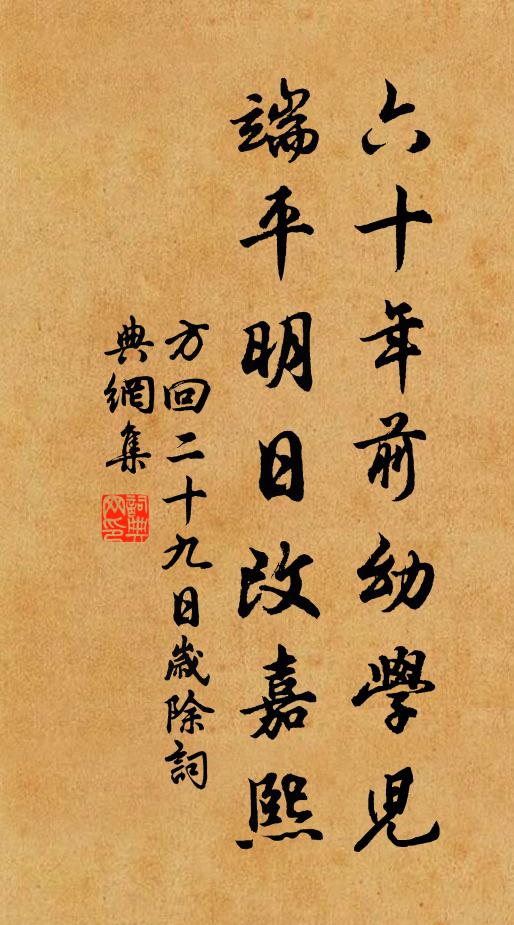 六十年前幼學兒
端平明日改嘉熙
方回二十九日歲除詞
典網集
詞典網印